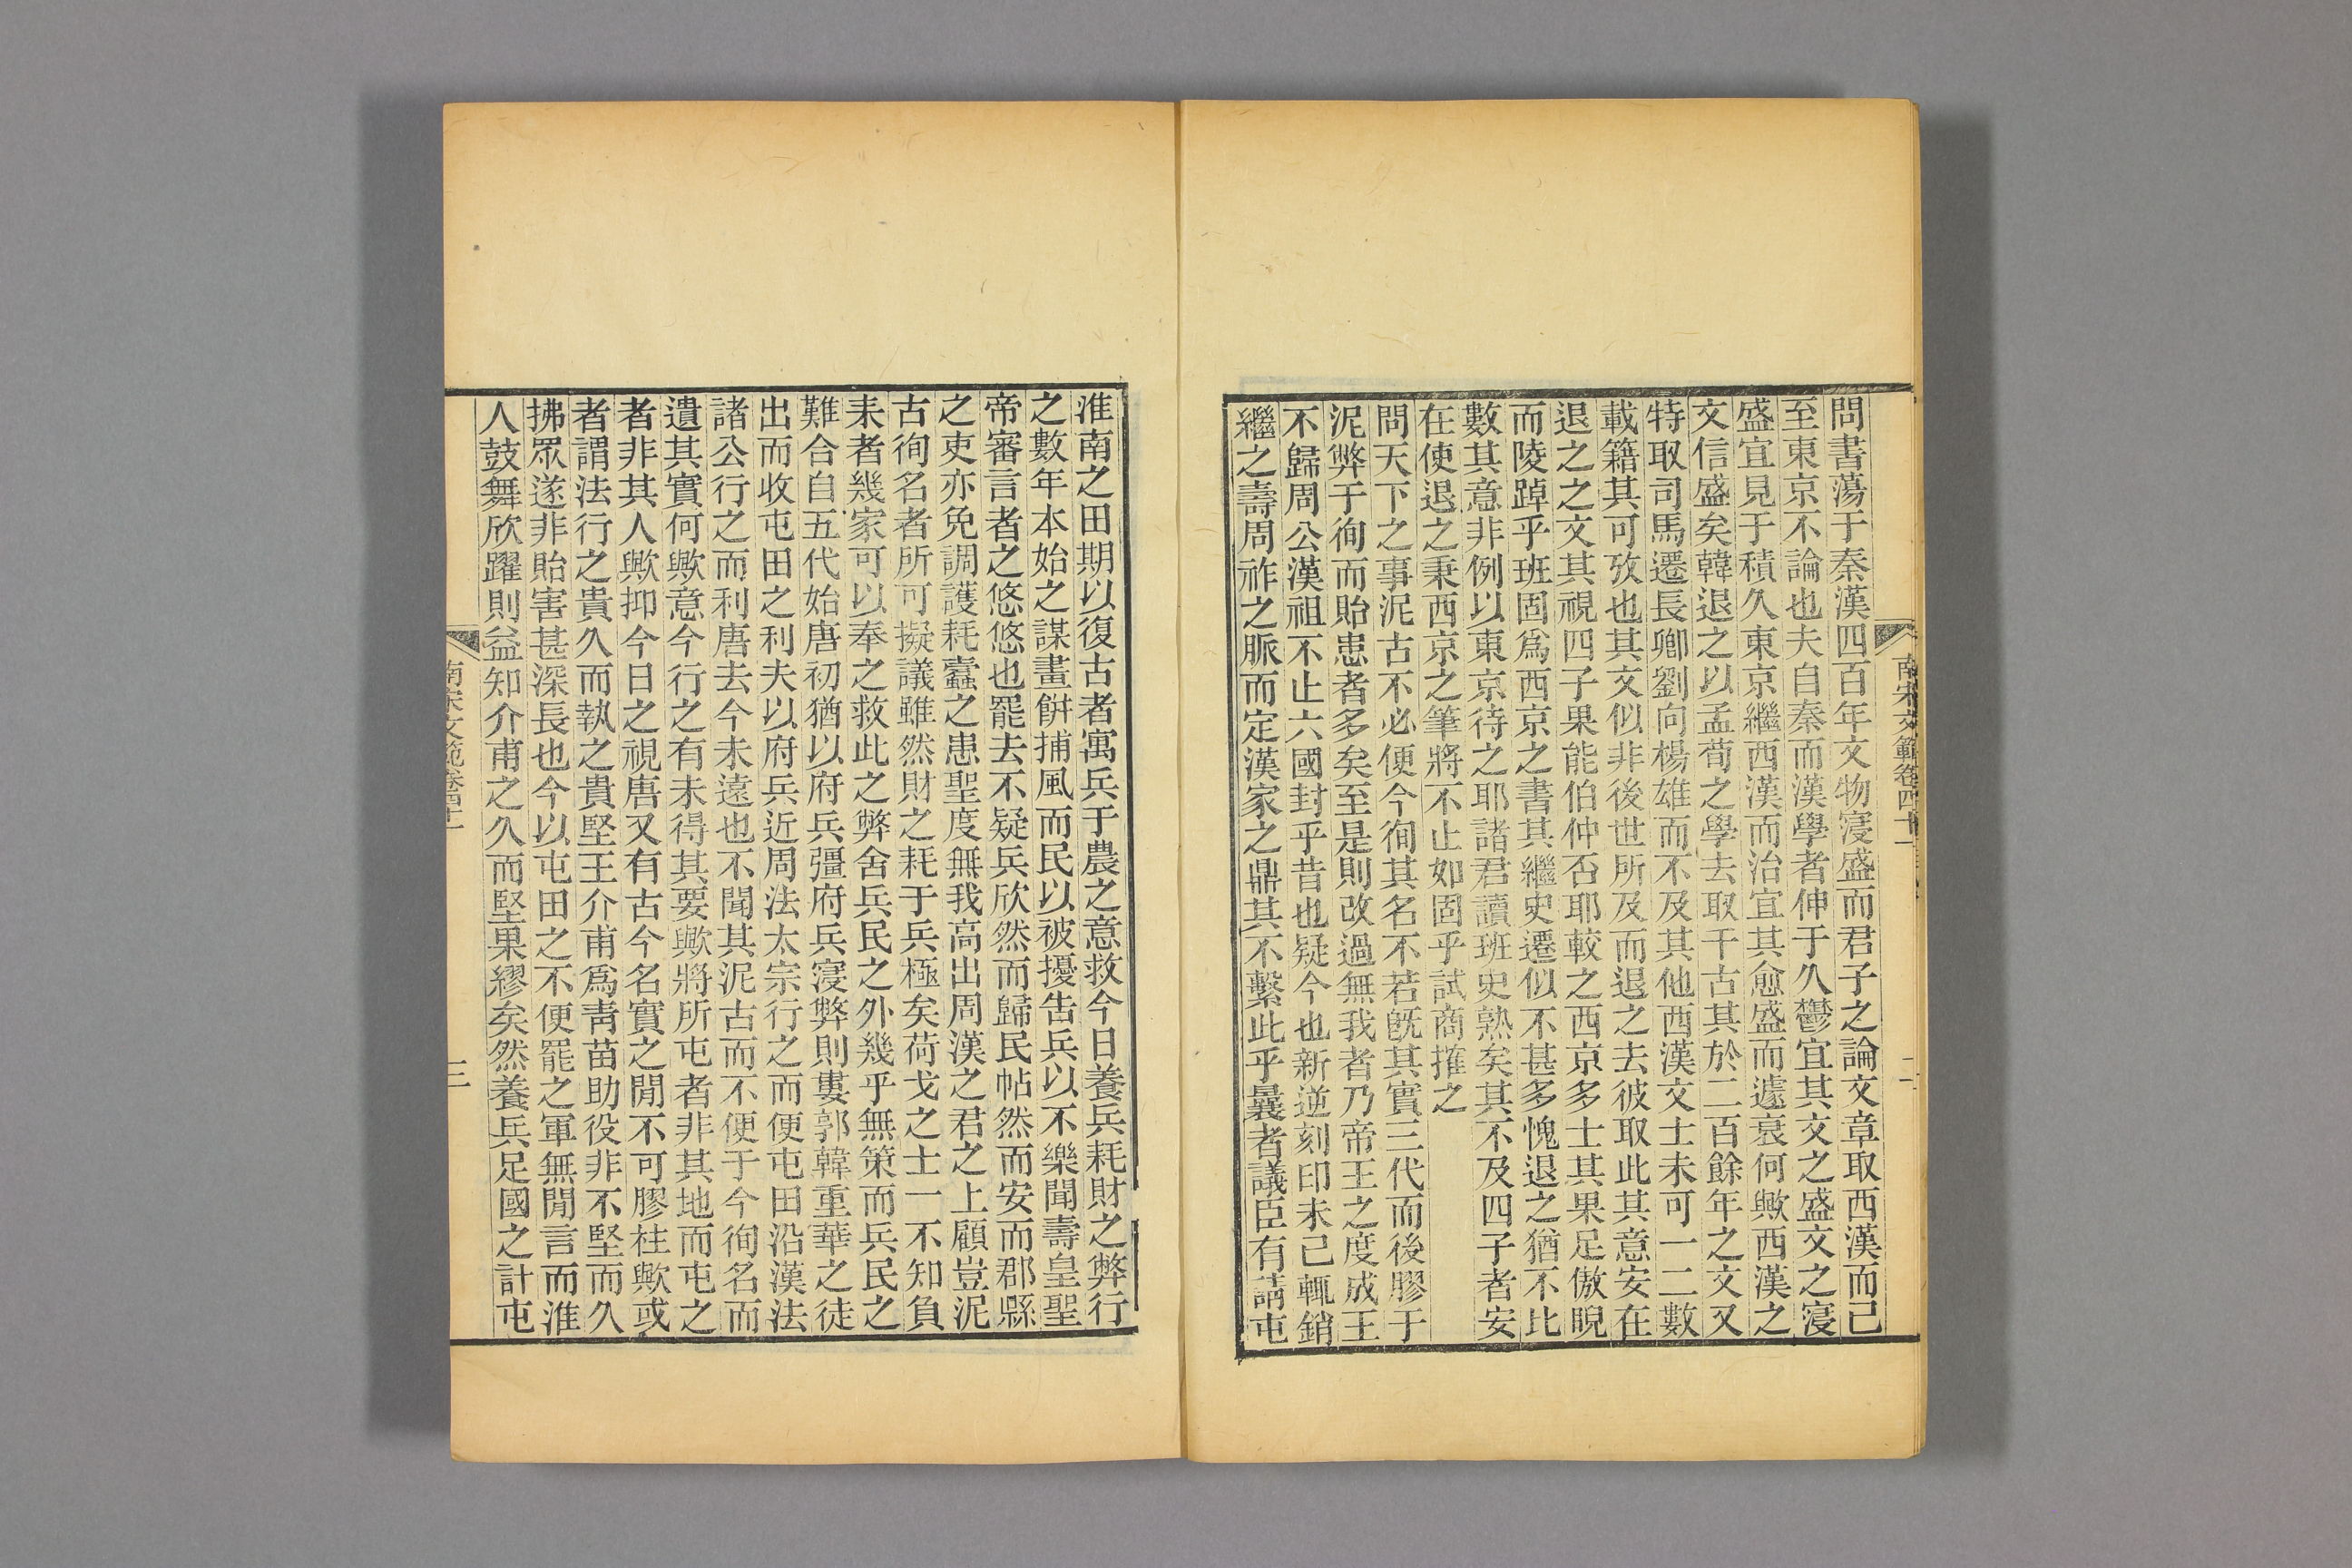 南宋文範卷四十一
二
問書蕩于秦漢四百年文物寖盛而君子之論文章取西漢而已
至東京不論也夫自秦而漢學者伸于久鬱宜其文之盛文之寖
盛宜見于積久東京繼西漢而治宜其愈盛而遽衰何歟西漢之
文信盛矣韓退之以孟荀之學去取千古其於二百餘年之文又
特取司馬遷長卿劉向楊雄而不及其他西漢文士未可一二數
載籍其可攷也其文似非後世所及而退之去彼取此其意安在
退之之文其視四子果能伯仲否耶較之西京多士其果足傲睨
而陵踔乎班固爲西京之書其繼史遷似不甚多愧退之猶不比
數其意非例以東京待之耶諸君讀班史熟矣其不及四子者安
在使退之秉西京之筆將不止如固乎試商搉之
問天下之事泥古不必便今徇其名不若旣其實三代而後膠于
泥弊于徇而貽患者多矣至是則改過無我者乃帝王之度成王
不歸周公漢祖不止六國封乎昔也疑今也新逆刻印未已輒銷
繼之壽周祚之脈而定漢家之鼎其不繫此乎曩者議臣有請屯
淮南之田期以復古者寓兵于農之意救今日養兵耗財之弊行
之數年本始之謀畫餅捕風而民以被擾吿兵以不樂聞壽皇聖
帝審言者之悠悠也罷去不疑兵欣然而歸民帖然而安而郡縣
之吏亦免調護耗蠹之患聖度無我高出周漢之君之上顧豈泥
古徇名者所可擬議雖然財之耗于兵極矣荷戈之士一不知負
耒者幾家可以奉之救此之弊舍兵民之外幾乎無策而兵民之
難合自五代始唐初猶以府兵彊府兵寖弊則婁郭韓重華之徒
出而收屯田之利夫以府兵近周法太宗行之而便屯田沿漢法
諸公行之而利唐去今未遠也不聞其泥古而不便于今徇名而
遺其實何歟意今行之有未得其要歟將所屯者非其地而屯之
者非其人歟抑今日之視唐又有古今名實之閒不可膠柱歟或
者謂法行之貴久而執之貴堅王介甫爲靑苗助役非不堅而久
拂眾遂非貽害甚深長也今以屯田之不便罷之軍無閒言而淮
人鼓舞欣躍則益知介甫之久而堅果繆矣然養兵足國之計屯
南宋文範卷四十一
三